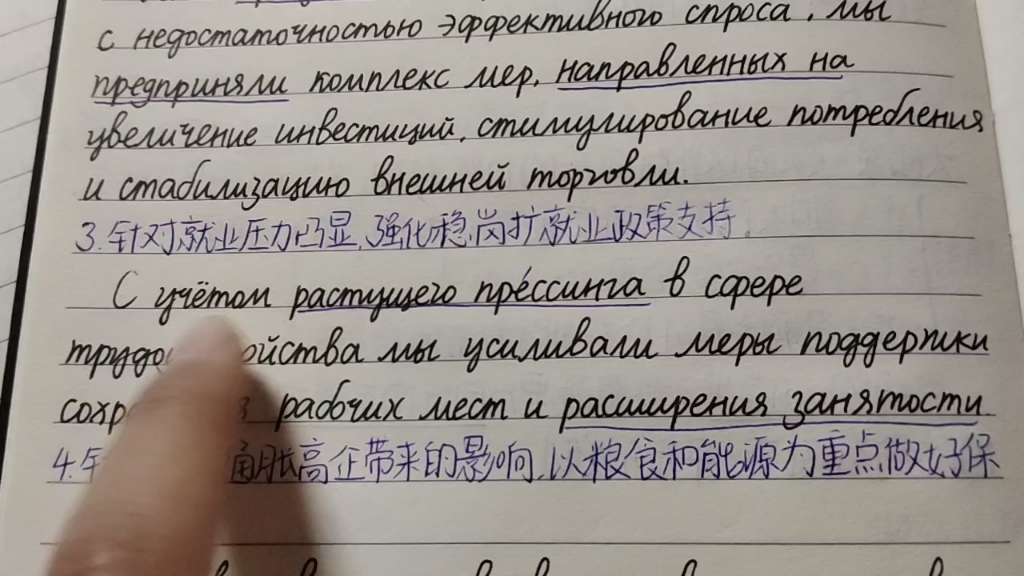 с недостаточностью эффективного спроса, мы
предприняли комплекс мер, направленных на
увеличение инвестиций, стимулирование потребления
и стабилизацию внешней торговли.
3.针对就业压力凸显,强化稳岗扩就业政策支持.
С учётом растущего пре́ссинга в сфере
мы усиливали меры поддержки
рабочих мест и расширения занятости
4. 通胀高企带来的影响,以粮食和能源为重点做好保